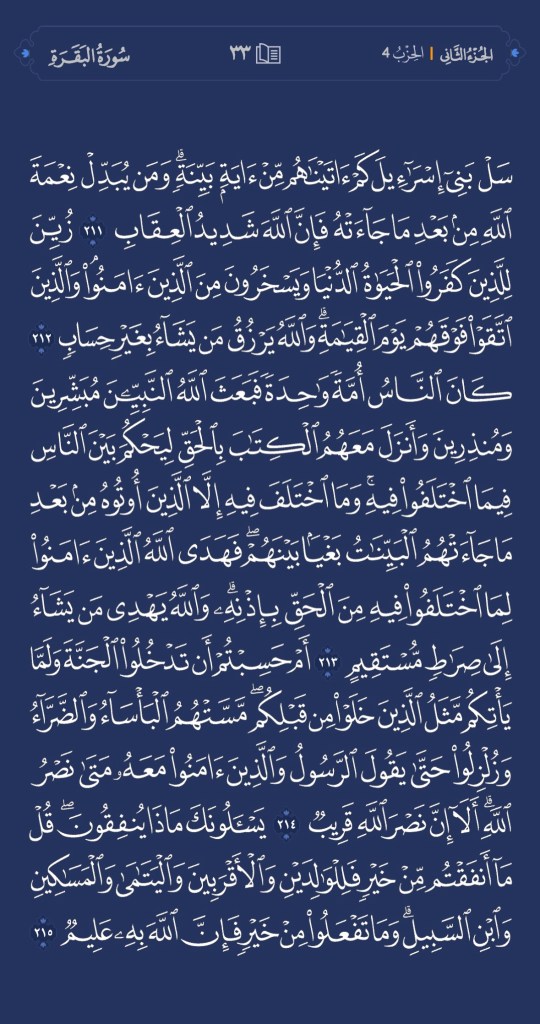 الجُزْءُ الثَّانِي | الحِزْبُ 4 ٣٣ سُورَةُ البَقَرَةِ
سَلْ بَنِىٓ إِسْرَٰٓءِيلَ كَمْ ءَاتَيْنَٰهُم مِّنْ ءَايَةٍۭ بَيِّنَةٍۗ وَمَن يُبَدِّلْ نِعْمَةَ
ٱللَّهِ مِنۢ بَعْدِ مَا جَآءَتْهُ فَإِنَّ ٱللَّهَ شَدِيدُ ٱلْعِقَابِ ٢١١ زُيِّنَ
لِلَّذِينَ كَفَرُوا۟ ٱلْحَيَوٰةُ ٱلدُّنْيَا وَيَسْخَرُونَ مِنَ ٱلَّذِينَ ءَامَنُوا۟ۘ وَٱلَّذِينَ
ٱتَّقَوْا۟ فَوْقَهُمْ يَوْمَ ٱلْقِيَٰمَةِۗ وَٱللَّهُ يَرْزُقُ مَن يَشَآءُ بِغَيْرِ حِسَابٍ ٢١٢
كَانَ ٱلنَّاسُ أُمَّةً وَٰحِدَةً فَبَعَثَ ٱللَّهُ ٱلنَّبِيِّۦنَ مُبَشِّرِينَ
وَمُنذِرِينَ وَأَنزَلَ مَعَهُمُ ٱلْكِتَٰبَ بِٱلْحَقِّ لِيَحْكُمَ بَيْنَ ٱلنَّاسِ
فِيمَا ٱخْتَلَفُوا۟ فِيهِۚ وَمَا ٱخْتَلَفَ فِيهِ إِلَّا ٱلَّذِينَ أُوتُوهُ مِنۢ بَعْدِ
مَا جَآءَتْهُمُ ٱلْبَيِّنَٰتُ بَغْيًۢا بَيْنَهُمْۖ فَهَدَى ٱللَّهُ ٱلَّذِينَ ءَامَنُوا۟
لِمَا ٱخْتَلَفُوا۟ فِيهِ مِنَ ٱلْحَقِّ بِإِذْنِهِۦۗ وَٱللَّهُ يَهْدِى مَن يَشَآءُ
إِلَىٰ صِرَٰطٍ مُّسْتَقِيمٍ ٢١٣ أَمْ حَسِبْتُمْ أَن تَدْخُلُوا۟ ٱلْجَنَّةَ وَلَمَّا
يَأْتِكُم مَّثَلُ ٱلَّذِينَ خَلَوْا۟ مِن قَبْلِكُمۖ مَّسَّتْهُمُ ٱلْبَأْسَآءُ وَٱلضَّرَّآءُ
وَزُلْزِلُوا۟ حَتَّىٰ يَقُولَ ٱلرَّسُولُ وَٱلَّذِينَ ءَامَنُوا۟ مَعَهُۥ مَتَىٰ نَصْرُ
ٱللَّهِۗ أَلَآ إِنَّ نَصْرَ ٱللَّهِ قَرِيبٌ ٢١٤ يَسْـَٔلُونَكَ مَاذَا يُنفِقُونَۖ قُلْ
مَآ أَنفَقْتُم مِّنْ خَيْرٍ فَلِلْوَٰلِدَيْنِ وَٱلْأَقْرَبِينَ وَٱلْيَتَٰمَىٰ وَٱلْمَسَٰكِينِ
وَٱبْنِ ٱلسَّبِيلِۗ وَمَا تَفْعَلُوا۟ مِنْ خَيْرٍ فَإِنَّ ٱللَّهَ بِهِۦ عَلِيمٌ ٢١٥